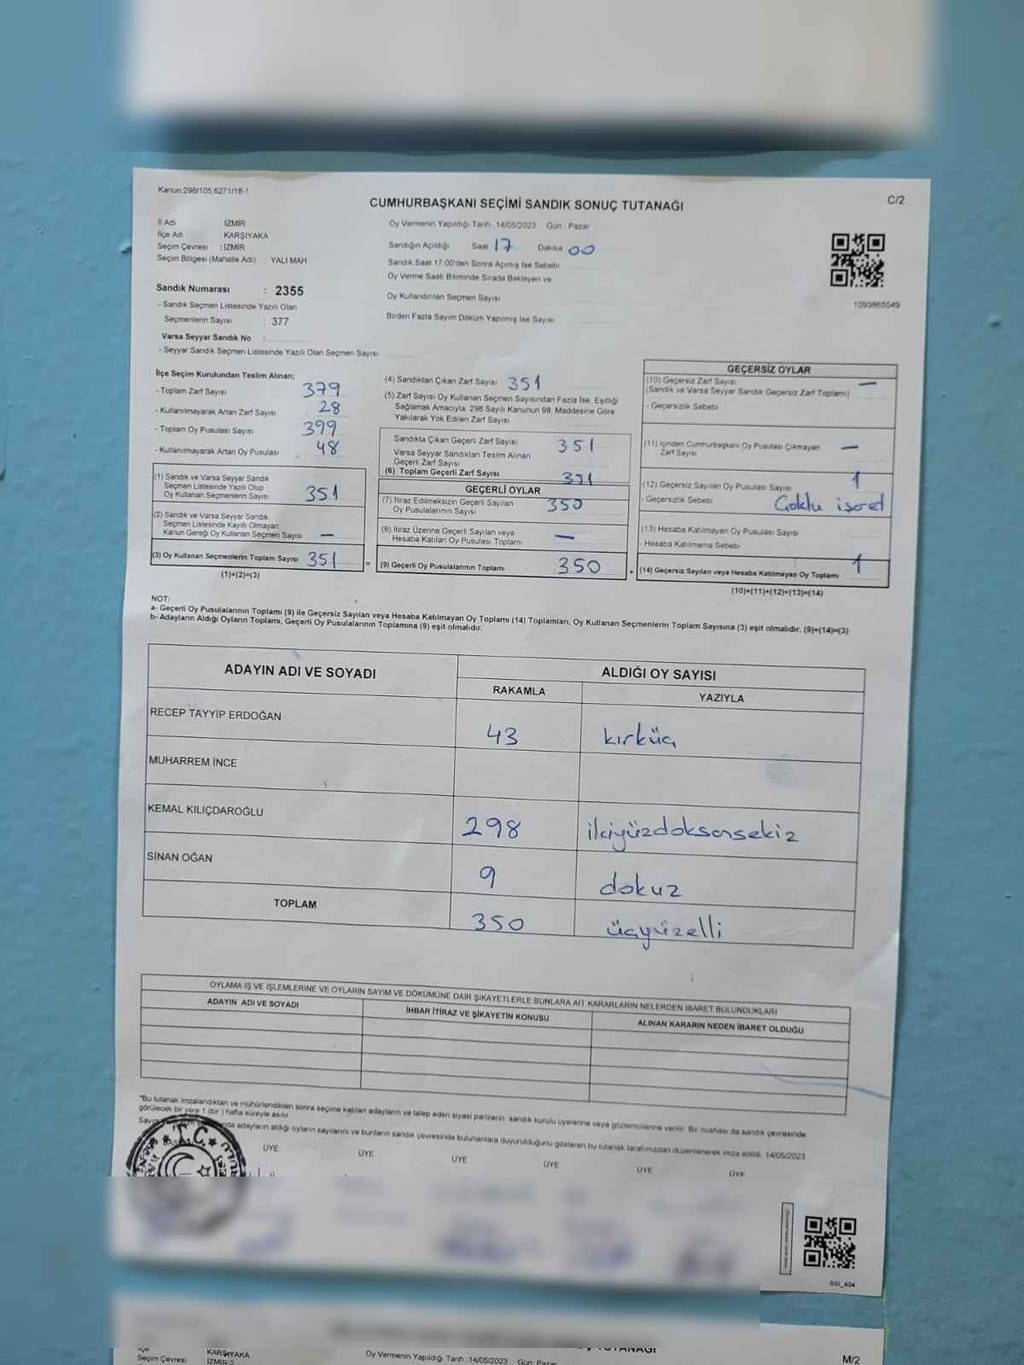 Kanun:298/105,6271/18-1
C/2
CUMHURBAŞKANI SEÇİMİ SANDIK SONUÇ TUTANAĞI
İl Adı : İZMİR
İlçe Adı : KARŞIYAKA
Seçim Çevresi : İZMİR
Seçim Bölgesi (Mahalle Adı) YALI MAH
Oy Vermenin Yapıldığı Tarih : 14/05/2023 Gün : Pazar
Sandığın Açıldığı Saat 17 Dakika 00
Sandık Saat 17:00'den Sonra Açılmış İse Sebebi
Oy Verme Saati Bitiminde Sırada Bekleyen ve
Oy Kullandırılan Seçmen Sayısı
Birden Fazla Sayım Döküm Yapılmış İse Sayısı
1093865049
Sandık Numarası : 2355
- Sandık Seçmen Listesinde Yazılı Olan
Seçmenlerin Sayısı : 377
Varsa Seyyar Sandık No :
- Seyyar Sandık Seçmen Listesinde Yazılı Olan Seçmen Sayısı
İlçe Seçim Kurulundan Teslim Alınan;
- Toplam Zarf Sayısı 379
- Kullanılmayarak Artan Zarf Sayısı 28
- Toplam Oy Pusulası Sayısı 399
- Kullanılmayarak Artan Oy Pusulası 48
(1) Sandık ve Varsa Seyyar Sandık
Seçmen Listesinde Yazılı Olup
Oy Kullanan Seçmenlerin Sayısı 351
(2) Sandık ve Varsa Seyyar Sandık
Seçmen Listesinde Kayıtlı Olmayan
Kanun Gereği Oy Kullanan Seçmen Sayısı —
(3) Oy Kullanan Seçmenlerin Toplam Sayısı 351
(1)+(2)=(3)
(4) Sandıktan Çıkan Zarf Sayısı 351
(5) Zarf Sayısı Oy Kullanan Seçmen Sayısından Fazla İse, Eşitliği
Sağlamak Amacıyla; 298 Sayılı Kanunun 98. Maddesine Göre
Yakılarak Yok Edilen Zarf Sayısı
Sandıkta Çıkan Geçerli Zarf Sayısı 351
Varsa Seyyar Sandıktan Teslim Alınan
Geçerli Zarf Sayısı
(6) Toplam Geçerli Zarf Sayısı 351
GEÇERLİ OYLAR
(7) İtiraz Edilmeksizin Geçerli Sayılan
Oy Pusulalarının Sayısı 350
(8) İtiraz Üzerine Geçerli Sayılan veya
Hesaba Katılan Oy Pusulası Toplamı —
= (9) Geçerli Oy Pusulalarının Toplamı 350
GEÇERSİZ OYLAR
(10) Geçersiz Zarf Sayısı —
(Sandık ve Varsa Seyyar Sandık Geçersiz Zarf Toplamı)
- Geçersizlik Sebebi
(11) İçinden Cumhurbaşkanı Oy Pusulası Çıkmayan
Zarf Sayısı —
(12) Geçersiz Sayılan Oy Pusulası Sayısı 1
- Geçersizlik Sebebi Çoklu işaret
(13) Hesaba Katılmayan Oy Pusulası Sayısı
- Hesaba Katılmama Sebebi
+ (14) Geçersiz Sayılan veya Hesaba Katılmayan Oy Toplamı 1
(10)+(11)+(12)+(13)=(14)
NOT:
a- Geçerli Oy Pusulalarının Toplamı (9) ile Geçersiz Sayılan veya Hesaba Katılmayan Oy Toplamı (14) Toplamları, Oy Kullanan Seçmenlerin Toplam Sayısına (3) eşit olmalıdır. (9)+(14)=(3)
b- Adayların Aldığı Oyların Toplamı, Geçerli Oy Pusulalarının Toplamına (9) eşit olmalıdır.
ADAYIN ADI VE SOYADI ALDIĞI OY SAYISI
RAKAMLA YAZIYLA
RECEP TAYYİP ERDOĞAN 43 kırküç
MUHARREM İNCE
KEMAL KILIÇDAROĞLU 298 ikiyüzdoksansekiz
SİNAN OĞAN 9 dokuz
TOPLAM 350 üçyüzelli
OYLAMA İŞ VE İŞLEMLERİNE VE OYLARIN SAYIM VE DÖKÜMÜNE DAİR ŞİKAYETLERLE BUNLARA AİT KARARLARIN NELERDEN İBARET BULUNDUKLARI
ADAYIN ADI VE SOYADI İHBAR İTİRAZ VE ŞİKAYETİN KONUSU ALINAN KARARIN NEDEN İBARET OLDUĞU
*Bu tutanak imzalandıktan ve mühürlendikten sonra seçime katılan adayların ve talep eden siyasi partilerin sandık kurulu üyelerine veya gözlemcilerine verilir. Bir nüshası da sandık çevresinde
görülecek bir yere 1 (bir) hafta süreyle asılır.
adayların aldığı oyların sayılarını ve bunların sandık çevresinde bulunanlara duyurulduğunu gösteren bu tutanak tarafımızdan düzenlenerek imza edildi. 14/05/2023
T.C.
ÜYE ÜYE ÜYE ÜYE ÜYE ÜYE
SSI_404
KARŞIYAKA
Seçim Çevresi İZMİR-2
Oy Vermenin Yapıldığı Tarih : 14/05/2023 Gün: Pazar
TUTANAĞI
M/2